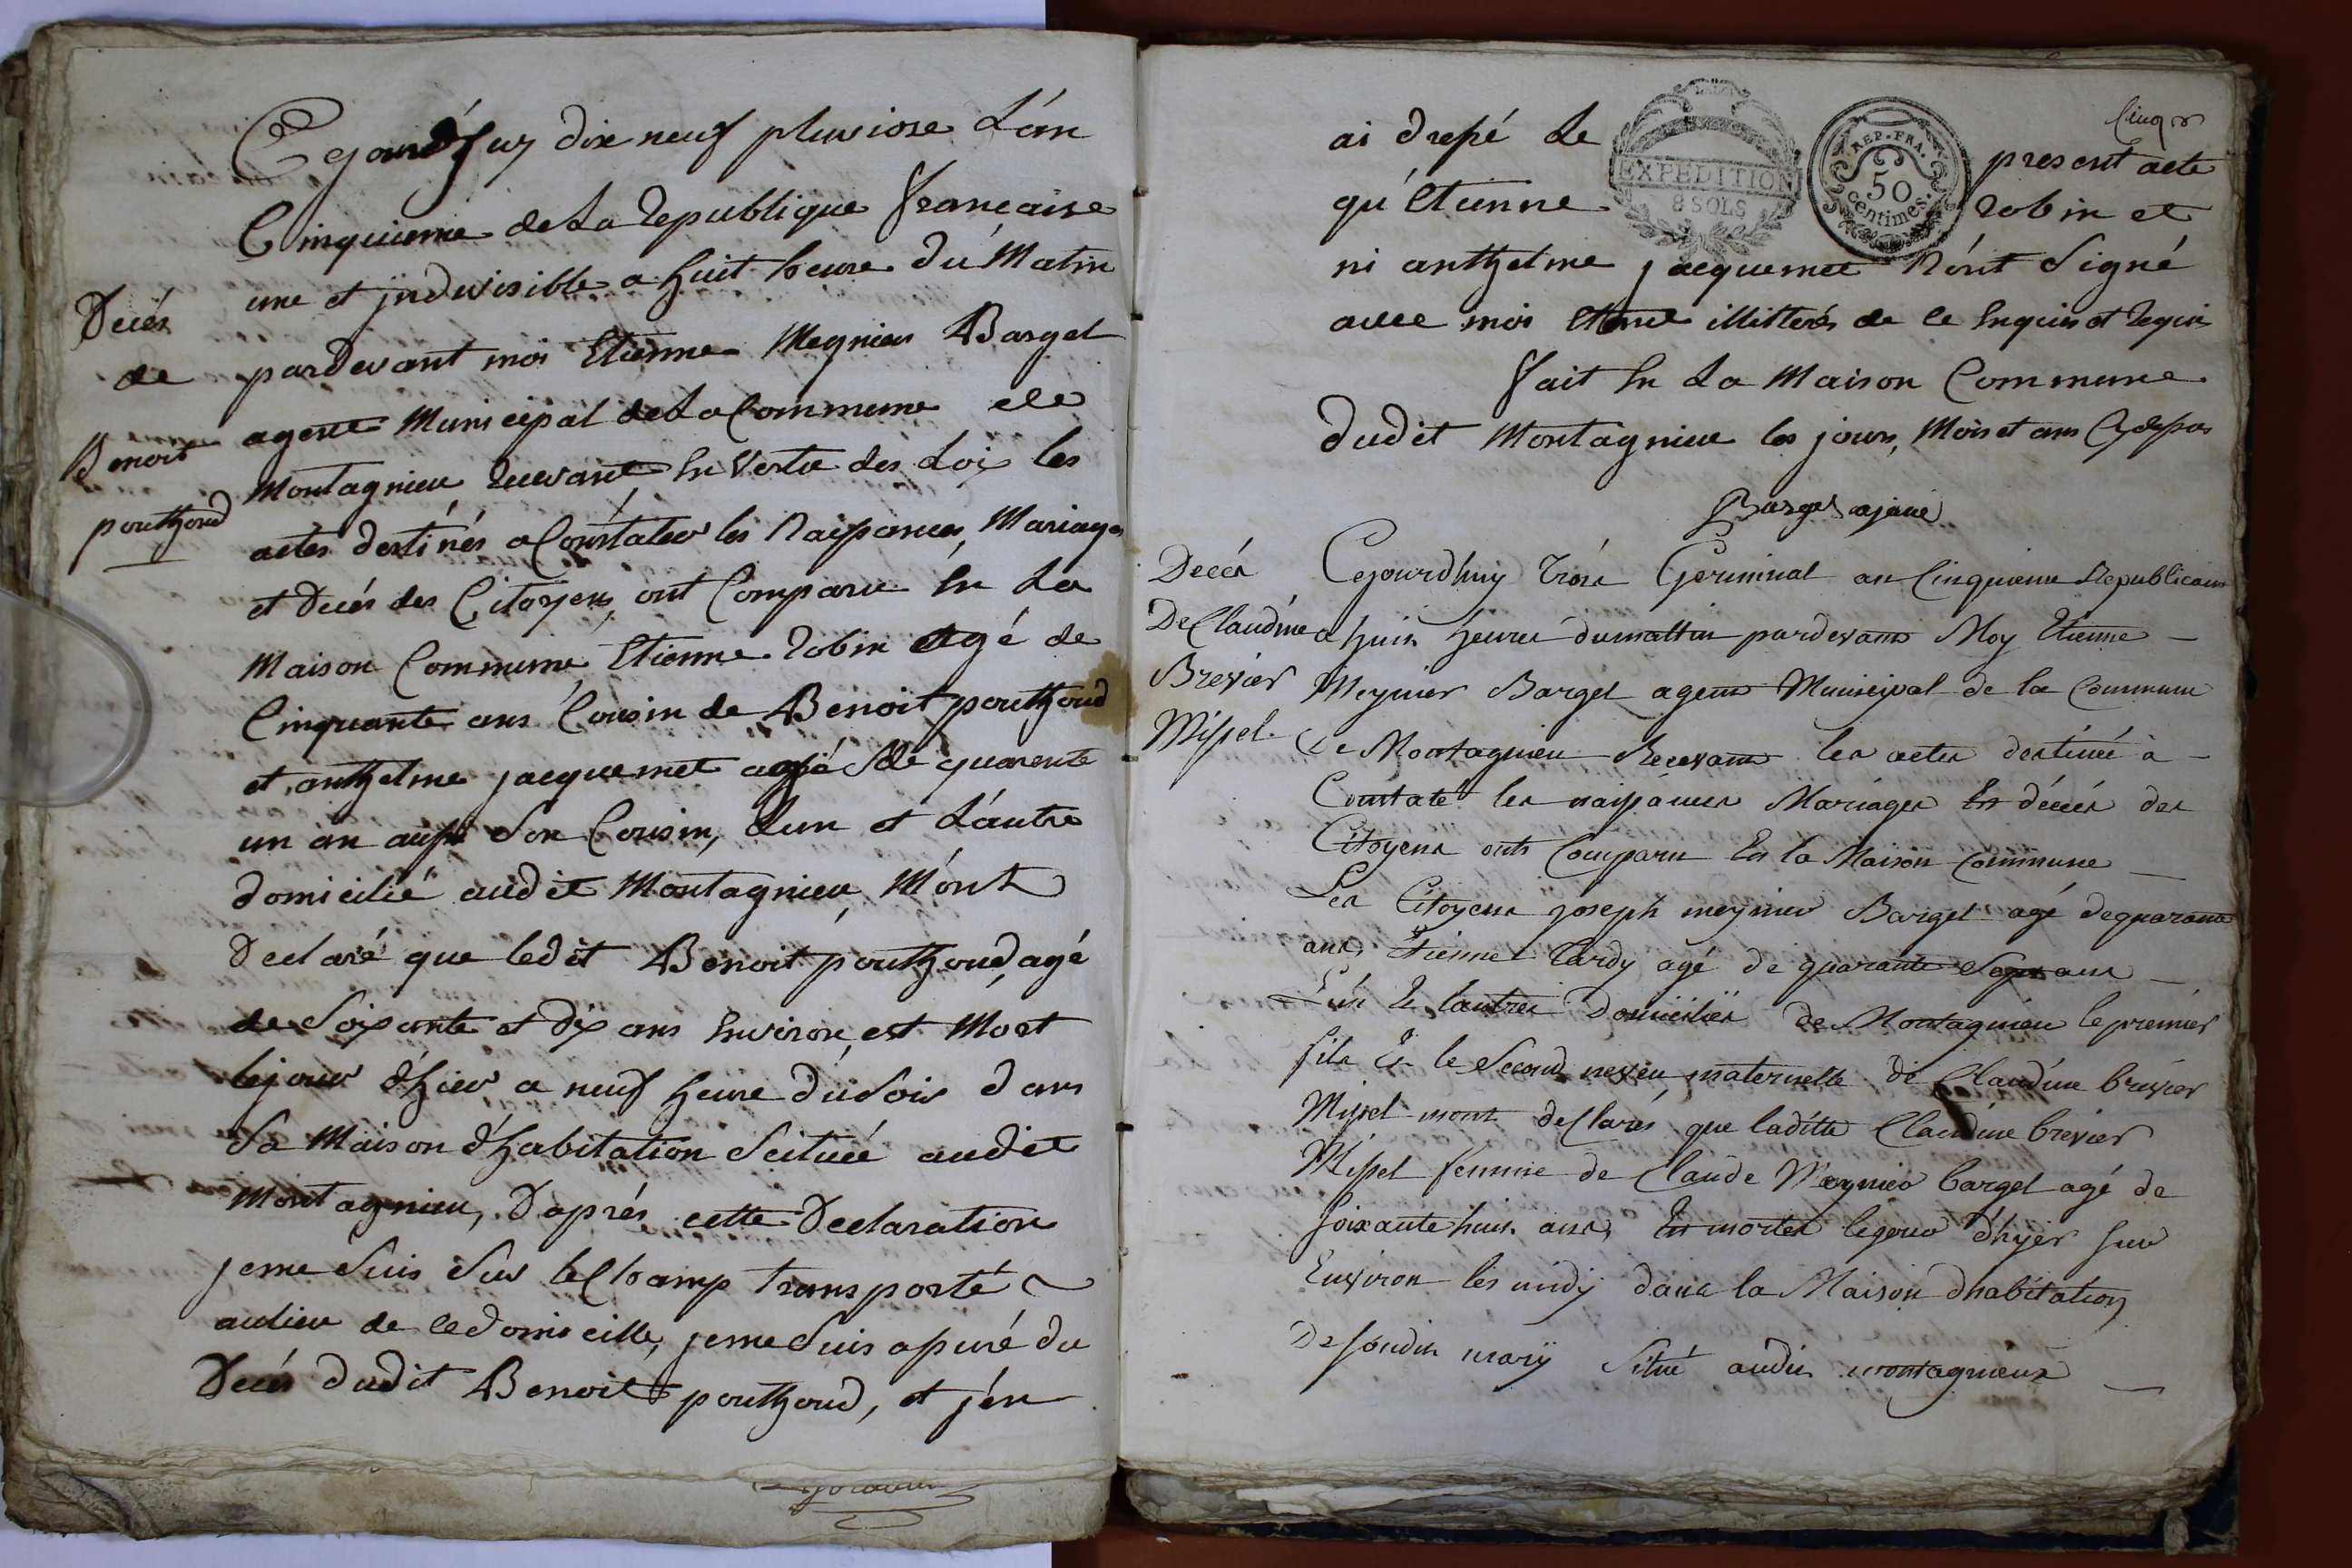 Cejourd'huy dix neuf pluviose L'an
Cinquieme de La republique francaise
une et jndivisible a huit heure du Matin
Deces
pardevant moi Etienne Megnieu Barget
de
agent Municipal de La Commune de
Benoit
Montagnieu recevant En Vertu des Loix les
pouthoud
actes destinés a Constater les Naissances, Mariages
et Decés des Citoyens, ont Comparu En La
Maison Commune, Etienne robin agé de
Cinquante ans Cousin de Benoit pouthoud
et anthelme jacquemet agé de quarente
un an aussi Son Cousin, L'un et L'autre
domicilié audit Montagnieu, M'ont
Declaré que ledit Benoit pouthoud, agé
de Soixante et dix ans Environ, est Mort
lejour d'hier a neuf heure du Soir dans
Sa Maison d'habitation Scituée audit
Montagnieu, D'aprés cette Declaration
jeme Suis Sur le Champ transporté
aulieu de ce domicille, jeme Suis assuré du
Decés dudit Benoit pouthoud, et j'en
Cinq
ai dressé Le present acte
EXPEDITION
8 SOLS
REP. FRA.
50
centimes.
qu'Etienne robin et
ni anthelme jacquemet N'ont Signé
avec moi illitterés de ce Enquis et requis
fait En La Maison Commune
dudit Montagnieu les jours, Mois et ans Cydessus
Barget
Decés Cejourdhuy trois Germinal an Cinquieme Republicain
De Claudine a huit heures dumattin pardevant Moy Etienne
Brevier Meynier Barget agent Municipal de la Commune
Missel de Montagnieu Recevant les actes destinée à
Constaté les naissances Mariages Et décés des
Citoyens onts Comparu En la Maison Commune
Les Citoyens joseph meynier Barget agé dequarante
ans, Etienne tardy agé de quarante Sept ans
L'un Et lautres Domicilies De Montagnieu le premier
fils Et le Second neveu maternelle de Claudine brevier
Missel mont declarés que laditte Claudine brevier
Missel femme de Claude Meynier barget agé de
Soixante huit ans, Est mortes lejour d'hyer Sur
Environ les midy dans la Maison dhabitation
De Soudit mary Situé audit montagnieux